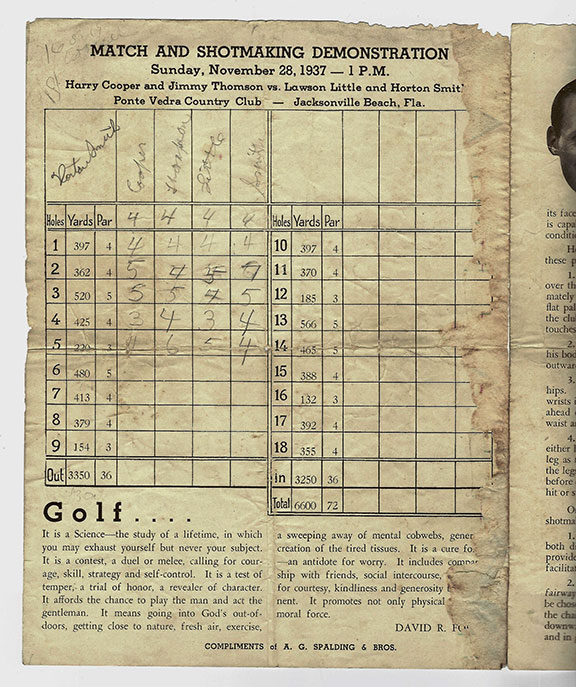 MATCH AND SHOTMAKING DEMONSTRATION
Sunday, November 28, 1937 — 1 P.M.
Harry Cooper and Jimmy Thomson vs. Lawson Little and Horton Smit
Ponte Vedra Country Club — Jacksonville Beach, Fla.
Horton Smith Cooper Thompson Little Smith
Holes Yards Par 4 4 4 4 Holes Yards Par
1 397 4 4 4 4 4 10 397 4
2 362 4 5 4 11 370 4
3 520 5 5 5 4 5 12 185 3
4 425 4 3 4 3 4 13 566 5
5 220 3 4 6 5 4 14 465 5
6 480 5 15 388 4
7 413 4 16 132 3
8 379 4 17 392 4
9 154 3 18 355 4
Out 3350 36 In 3250 36
Total 6600 72
Golf . . . .
It is a Science—the study of a lifetime, in which
you may exhaust yourself but never your subject.
It is a contest, a duel or melee, calling for cour-
age, skill, strategy and self-control. It is a test of
temper, a trial of honor, a revealer of character.
It affords the chance to play the man and act the
gentleman. It means going into God's out-of-
doors, getting close to nature, fresh air, exercise,
a sweeping away of mental cobwebs, gener
creation of the tired tissues. It is a cure fo
—an antidote for worry. It includes compan
ship with friends, social intercourse,
for courtesy, kindliness and generosity
nent. It promotes not only physical
moral force.
DAVID R. FO
COMPLIMENTS of A. G. SPALDING & BROS.
its face
is capa
conditi
these p
1.
over th
mately
flat pal
the clu
touches
2.
his bod
outwar
3.
hips.
wrists i
ahead
waist a
4.
either h
leg as
the legs
before
hit or s
shotma
1.
both d
provide
facilitat
2.
fairway
be chos
the cha
downw
and in